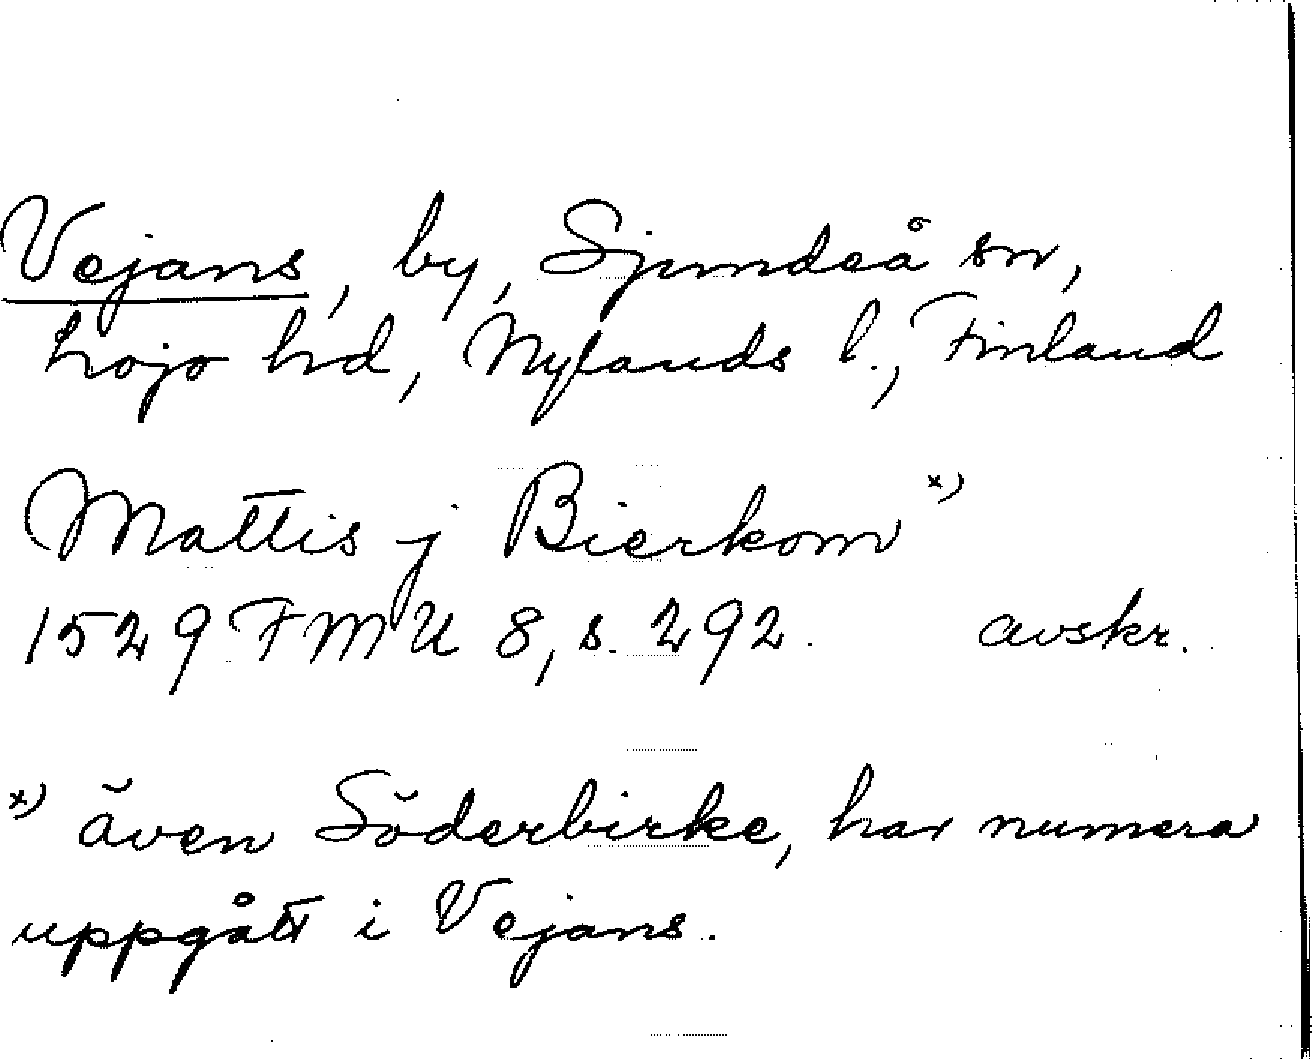 Vejans, by, Sjundeå sn,
Lojo hd, Nylands l., Finland
Mattis j Bierkom x)
1529 FMU 8, s. 292. avskr.
x) även Söderbirke, har numera
uppgått i Vejans.